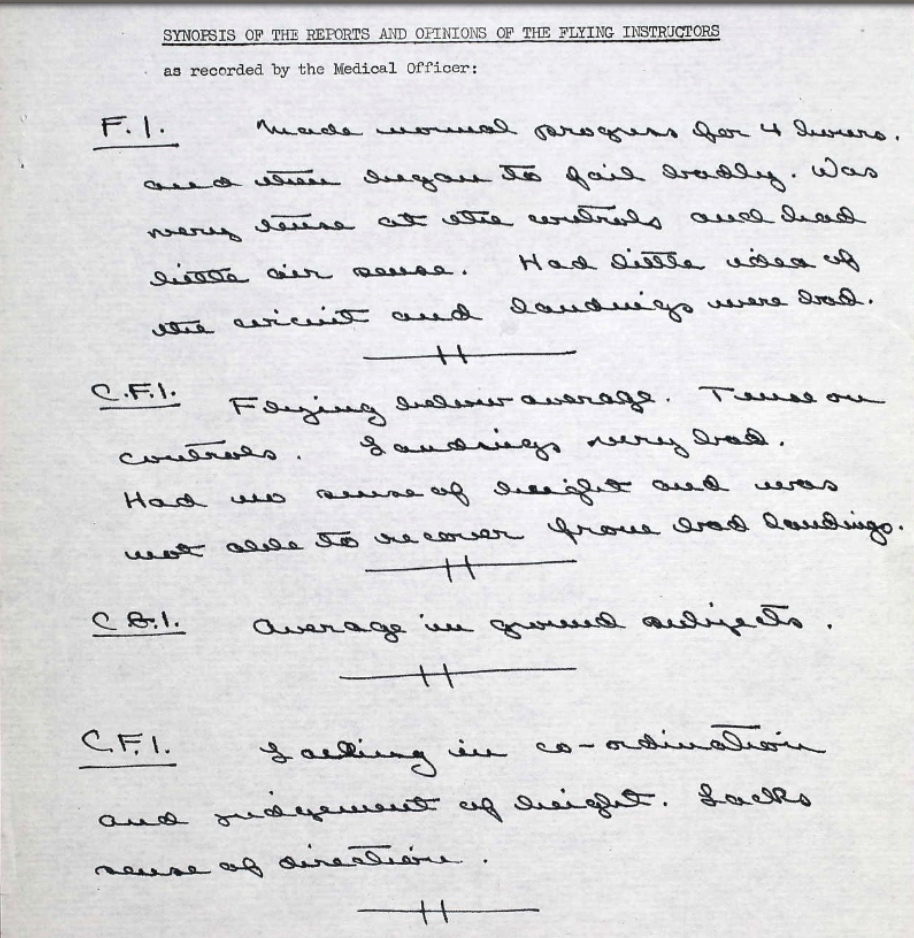 SYNOPSIS OF THE REPORTS AND OPINIONS OF THE FLYING INSTRUCTORS
as recorded by the Medical Officer:
F.I. Made normal progress for 4 hours.
and then began to fail badly. Was
very tense at the controls and had
little air sense. Had little idea of
the circuit and landings were bad.
C.F.I. Flying below average. Tense on
controls. Landings very bad.
Had no sense of height and was
not able to recover from bad landings.
C.G.I. Average in ground subjects.
C.F.I. Lacking in co-ordination
and judgement of height. Lacks
sense of direction.